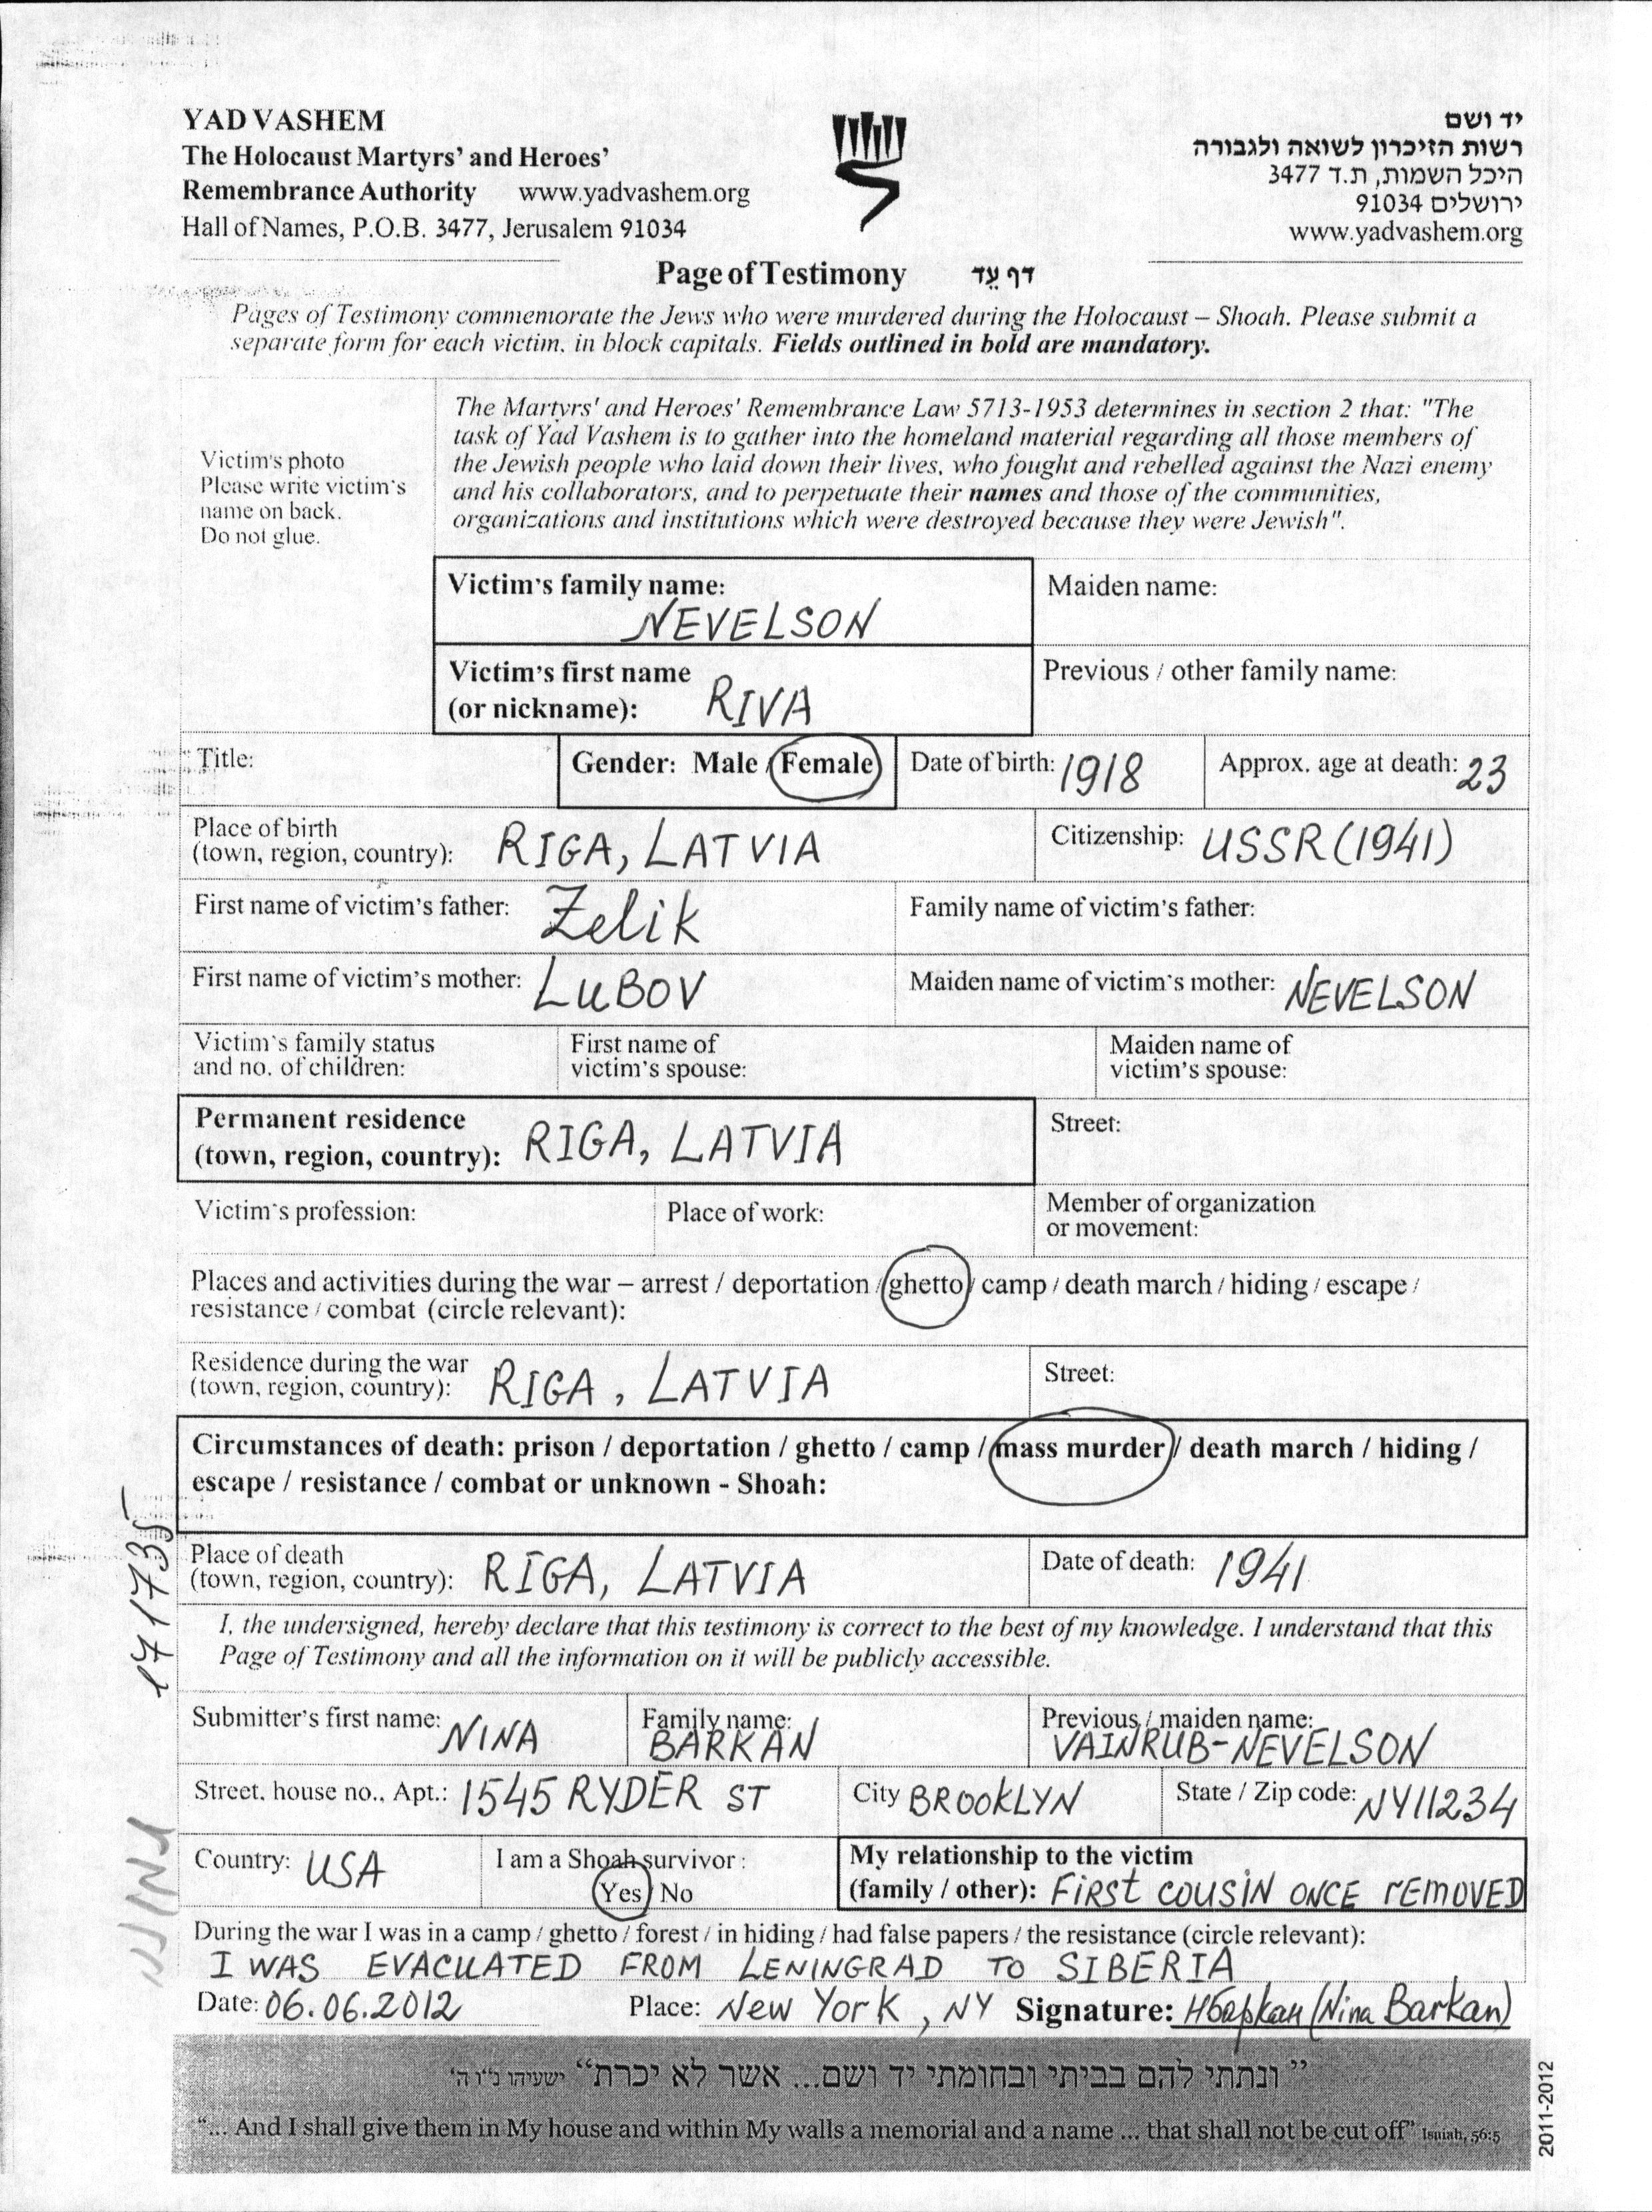 YAD VASHEM
The Holocaust Martyrs' and Heroes'
Remembrance Authority www.yadvashem.org
Hall of Names, P.O.B. 3477, Jerusalem 91034
יד ושם
רשות הזיכרון לשואה ולגבורה
היכל השמות, ת.ד 3477
ירושלים 91034
www.yadvashem.org
Page of Testimony דף עֵד
Pages of Testimony commemorate the Jews who were murdered during the Holocaust – Shoah. Please submit a
separate form for each victim, in block capitals. Fields outlined in bold are mandatory.
Victim's photo
Please write victim's
name on back.
Do not glue.
The Martyrs' and Heroes' Remembrance Law 5713-1953 determines in section 2 that: "The
task of Yad Vashem is to gather into the homeland material regarding all those members of
the Jewish people who laid down their lives, who fought and rebelled against the Nazi enemy
and his collaborators, and to perpetuate their names and those of the communities,
organizations and institutions which were destroyed because they were Jewish".
Victim's family name: Maiden name:
NEVELSON
Victim's first name Previous / other family name:
(or nickname): RIVA
Title: Gender: Male / Female Date of birth: 1918 Approx. age at death: 23
Place of birth
(town, region, country): RIGA, LATVIA Citizenship: USSR (1941)
First name of victim's father: Zelik Family name of victim's father:
First name of victim's mother: LUBOV Maiden name of victim's mother: NEVELSON
Victim's family status First name of Maiden name of
and no. of children: victim's spouse: victim's spouse:
Permanent residence Street:
(town, region, country): RIGA, LATVIA
Victim's profession: Place of work: Member of organization
or movement:
Places and activities during the war – arrest / deportation / ghetto / camp / death march / hiding / escape /
resistance / combat (circle relevant):
Residence during the war Street:
(town, region, country): RIGA, LATVIA
Circumstances of death: prison / deportation / ghetto / camp / mass murder / death march / hiding /
escape / resistance / combat or unknown - Shoah:
Place of death Date of death: 1941
(town, region, country): RIGA, LATVIA
I, the undersigned, hereby declare that this testimony is correct to the best of my knowledge. I understand that this
Page of Testimony and all the information on it will be publicly accessible.
Submitter's first name: NINA Family name: BARKAN Previous / maiden name: VAINRUB-NEVELSON
Street, house no., Apt.: 1545 RYDER ST City BROOKLYN State / Zip code: NY 11234
Country: USA I am a Shoah survivor: Yes / No My relationship to the victim
(family / other): FIRST COUSIN ONCE REMOVED
During the war I was in a camp / ghetto / forest / in hiding / had false papers / the resistance (circle relevant):
I WAS EVACUATED FROM LENINGRAD TO SIBERIA
Date: 06.06.2012 Place: New York, NY Signature: НБаркан (Nina Barkan)
"ונתתי להם בביתי ובחומתי יד ושם... אשר לא יכרת" ישעיהו נ"ו ה'
"... And I shall give them in My house and within My walls a memorial and a name ... that shall not be cut off" Isaiah, 56:5
2011-2012